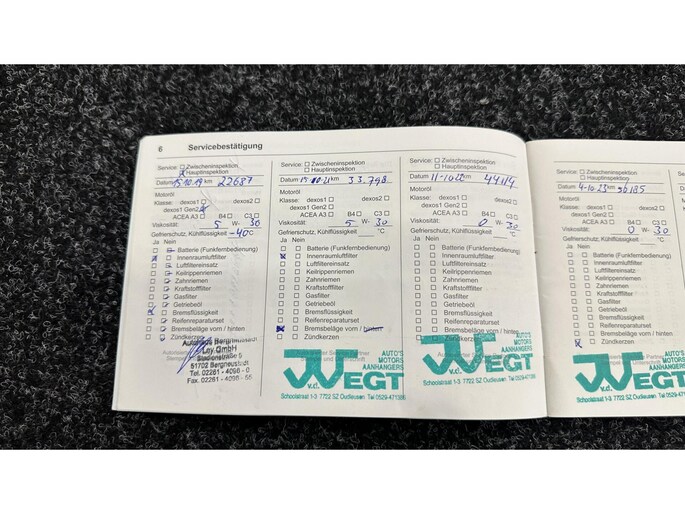 6 Servicebestätigung
Service: Zwischeninspektion
Hauptinspektion
Datum 15.10.19 km 22687
Motoröl
Klasse: dexos1 dexos2
dexos1 Gen2
ACEA A3 B4 C3
Viskosität: 5 W- 30
Gefrierschutz, Kühlflüssigkeit -40°C
Ja Nein
Batterie (Funkfernbedienung)
Innenraumluftfilter
Luftfiltereinsatz
Keilrippenriemen
Zahnriemen
Kraftstofffilter
Gasfilter
Getriebeöl
Bremsflüssigkeit
Reifenreparaturset
Bremsbeläge vorn / hinten
Zündkerzen
Autohaus Bergneustadt
Ley GmbH
51702 Bergneustadt
Tel. 02261 - 4098 - 0
Fax. 02261 - 4098 - 55
Service: Zwischeninspektion
Hauptinspektion
Datum 15-10-21 km 33.798
Motoröl
Klasse: dexos1 dexos2
dexos1 Gen2
ACEA A3 B4 C3
Viskosität: 5 W- 30
Gefrierschutz, Kühlflüssigkeit °C
Ja Nein
Batterie (Funkfernbedienung)
Innenraumluftfilter
Luftfiltereinsatz
Keilrippenriemen
Zahnriemen
Kraftstofffilter
Gasfilter
Getriebeöl
Bremsflüssigkeit
Reifenreparaturset
Bremsbeläge vorn / hinten
Zündkerzen
AUTO'S
MOTORS
AANHANGERS
v.d. VEGT
Schoolstraat 1-3 7722 SZ Oudleusen Tel 0529-471385
Service: Zwischeninspektion
Hauptinspektion
Datum 11-10-22 km 44114
Motoröl
Klasse: dexos1 dexos2
dexos1 Gen2
ACEA A3 B4 C3
Viskosität: 0 W- 30
Gefrierschutz, Kühlflüssigkeit °C
Ja Nein
Batterie (Funkfernbedienung)
Innenraumluftfilter
Luftfiltereinsatz
Keilrippenriemen
Zahnriemen
Kraftstofffilter
Gasfilter
Getriebeöl
Bremsflüssigkeit
Reifenreparaturset
Bremsbeläge vorn / hinten
Zündkerzen
AUTO'S
MOTORS
AANHANGERS
v.d. VEGT
Schoolstraat 1-3 7722 SZ Oudleusen Tel 0529-471385
Service: Zwischeninspektion
Hauptinspektion
Datum 4-10-23 km 56185
Motoröl
Klasse: dexos1 dexos2
dexos1 Gen2
ACEA A3 B4 C3
Viskosität: 0 W- 30
Gefrierschutz, Kühlflüssigkeit °C
Ja Nein
Batterie (Funkfernbedienung)
Innenraumluftfilter
Luftfiltereinsatz
Keilrippenriemen
Zahnriemen
Kraftstofffilter
Gasfilter
Getriebeöl
Bremsflüssigkeit
Reifenreparaturset
Bremsbeläge vorn / hinten
Zündkerzen
AUTO'S
MOTORS
AANHANGERS
v.d. VEGT
Schoolstraat 1-3 7722 SZ Oudleusen Tel 0529-4713